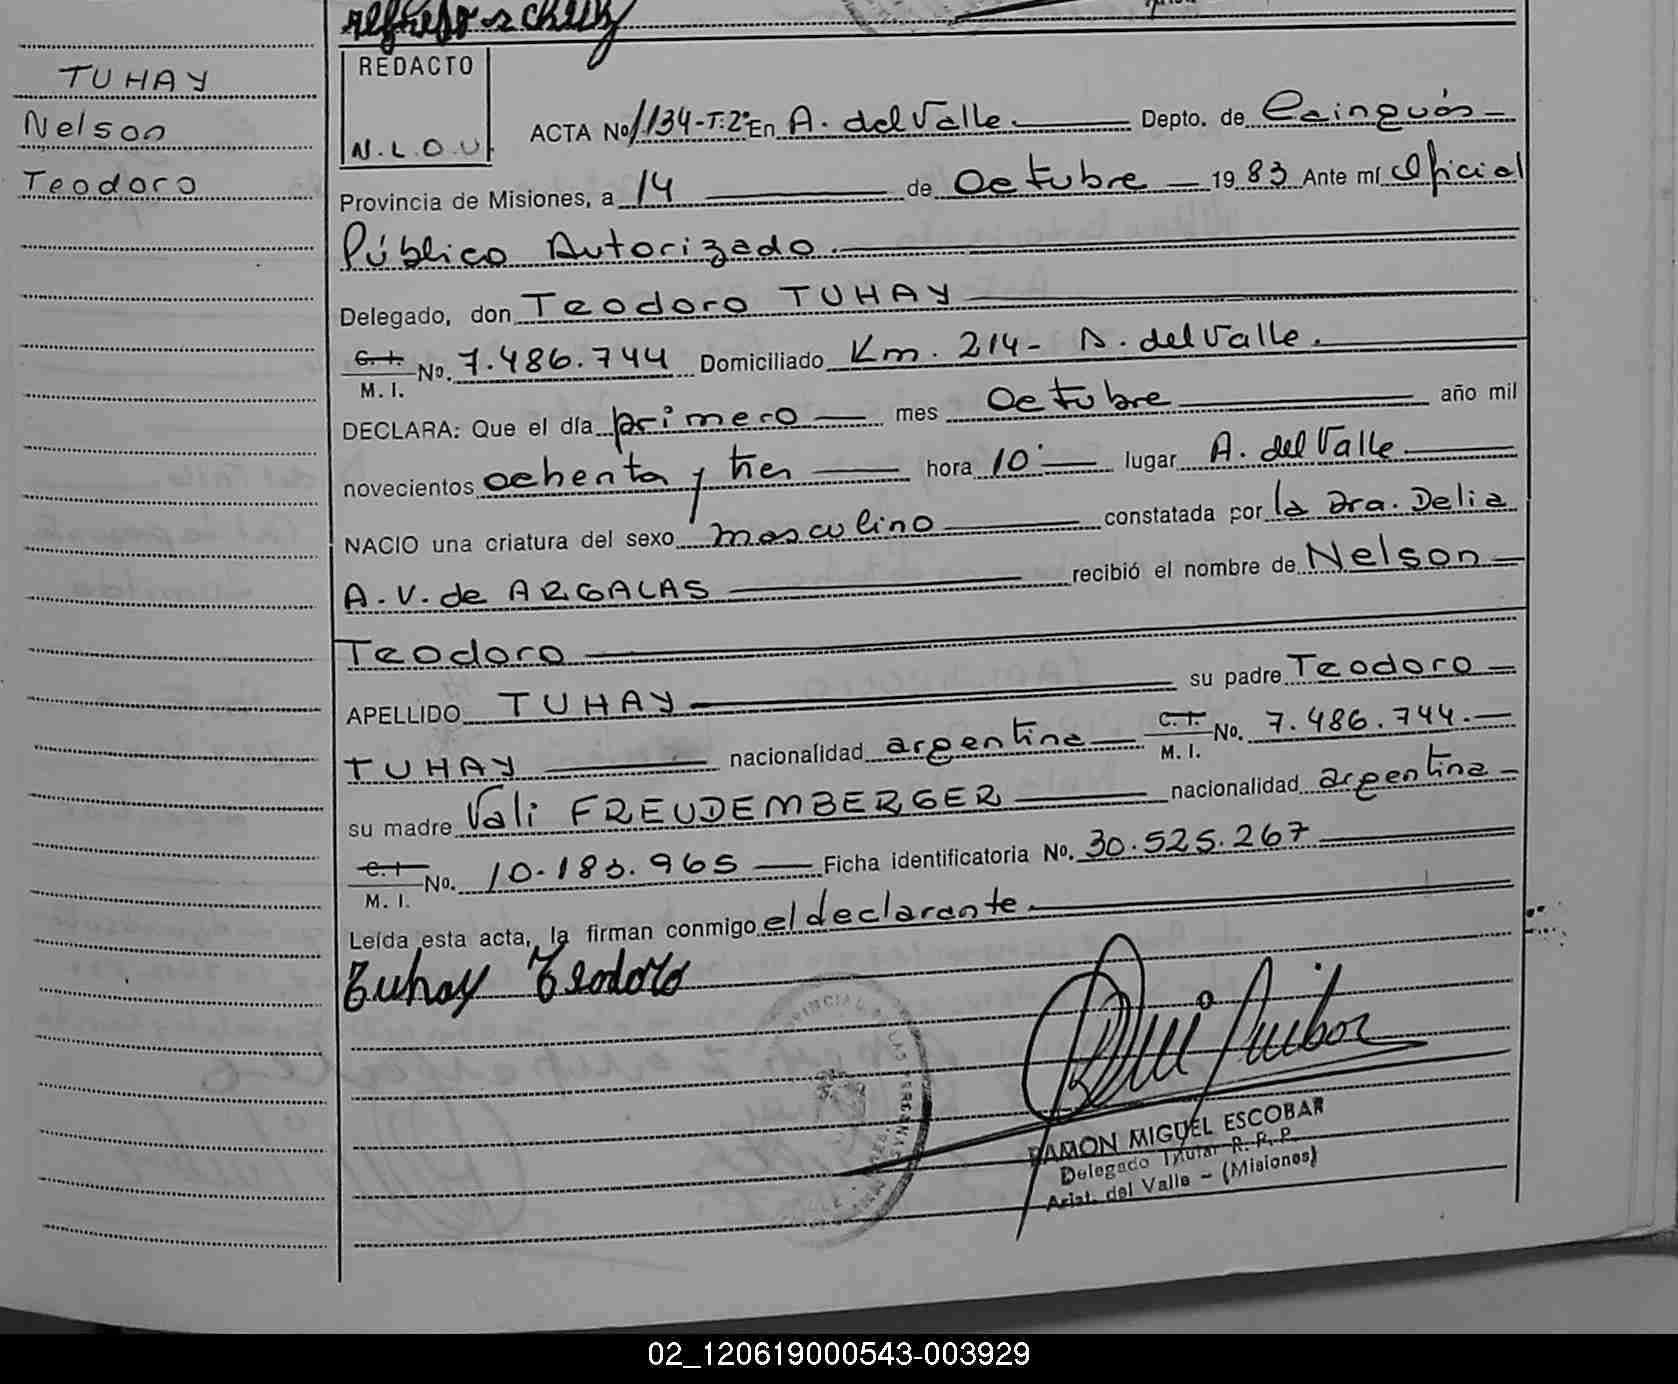 TUHAY
Nelson
Teodoro
REDACTO
N.L.O.U.
ACTA No 1134-T:2º En A. del Valle. Depto. de Cainguás-
Provincia de Misiones, a 14 de Octubre 1983 Ante mí Oficial
Público Autorizado.
Delegado, don Teodoro TUHAY
C. I.
M. I. No. 7.486.744 Domiciliado Km. 214- A. del Valle.
DECLARA: Que el día primero mes Octubre año mil
novecientos ochenta y tres hora 10 lugar A. del Valle
NACIO una criatura del sexo masculino constatada por la Dra. Delia
A.V. de ARGALAS recibió el nombre de Nelson
Teodoro
APELLIDO TUHAY su padre Teodoro
TUHAY nacionalidad argentina C. I. M. I. No. 7.486.744.
su madre Vali FREUDEMBERGER nacionalidad argentina
C. I.
M. I. No. 10.183.965 Ficha identificatoria No. 30.525.267
Leída esta acta, la firman conmigo el declarante.
Tuhay Teodoro
RAMON MIGUEL ESCOBAR
Delegado Titular R. P. P.
Arist. del Valle - (Misiones)
02_120619000543-003929